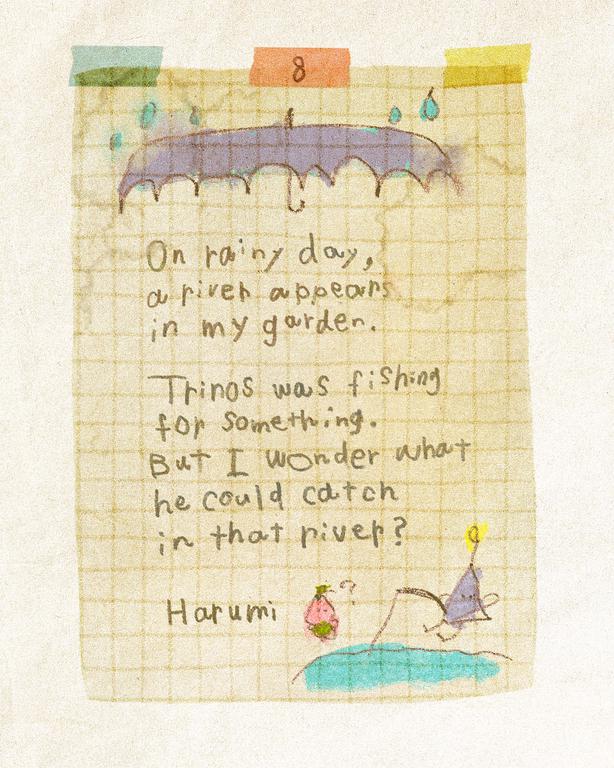 8
On rainy day,
a river appears
in my garden.
Trinos was fishing
for something.
But I wonder what
he could catch
in that river?
Harumi
?